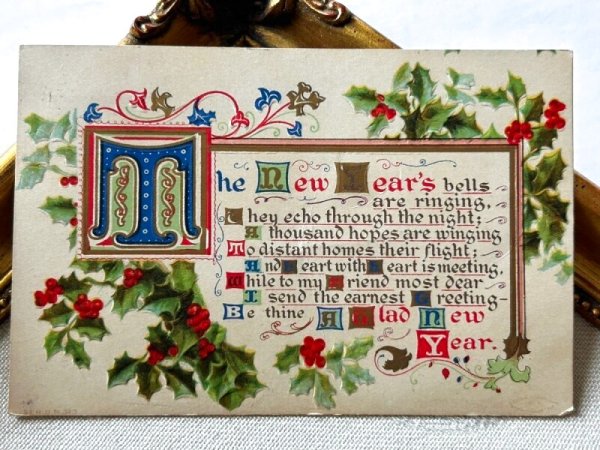 The New Year's bells
are ringing,
They echo through the night;
A thousand hopes are winging
To distant homes their flight;
And heart with heart is meeting,
While to my friend most dear
I send the earnest Greeting-
Be thine A Glad New
Year.